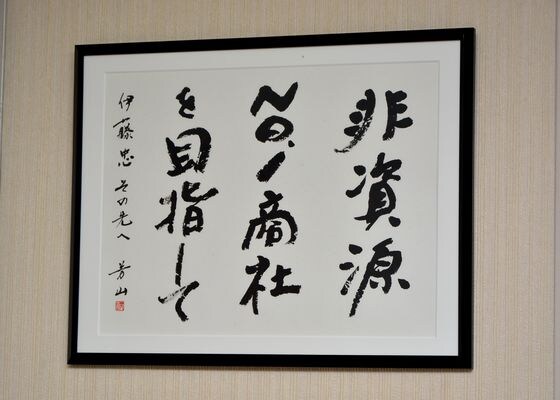 非資源
NO.1商社
を目指して
伊藤忠 その先へ 芳山